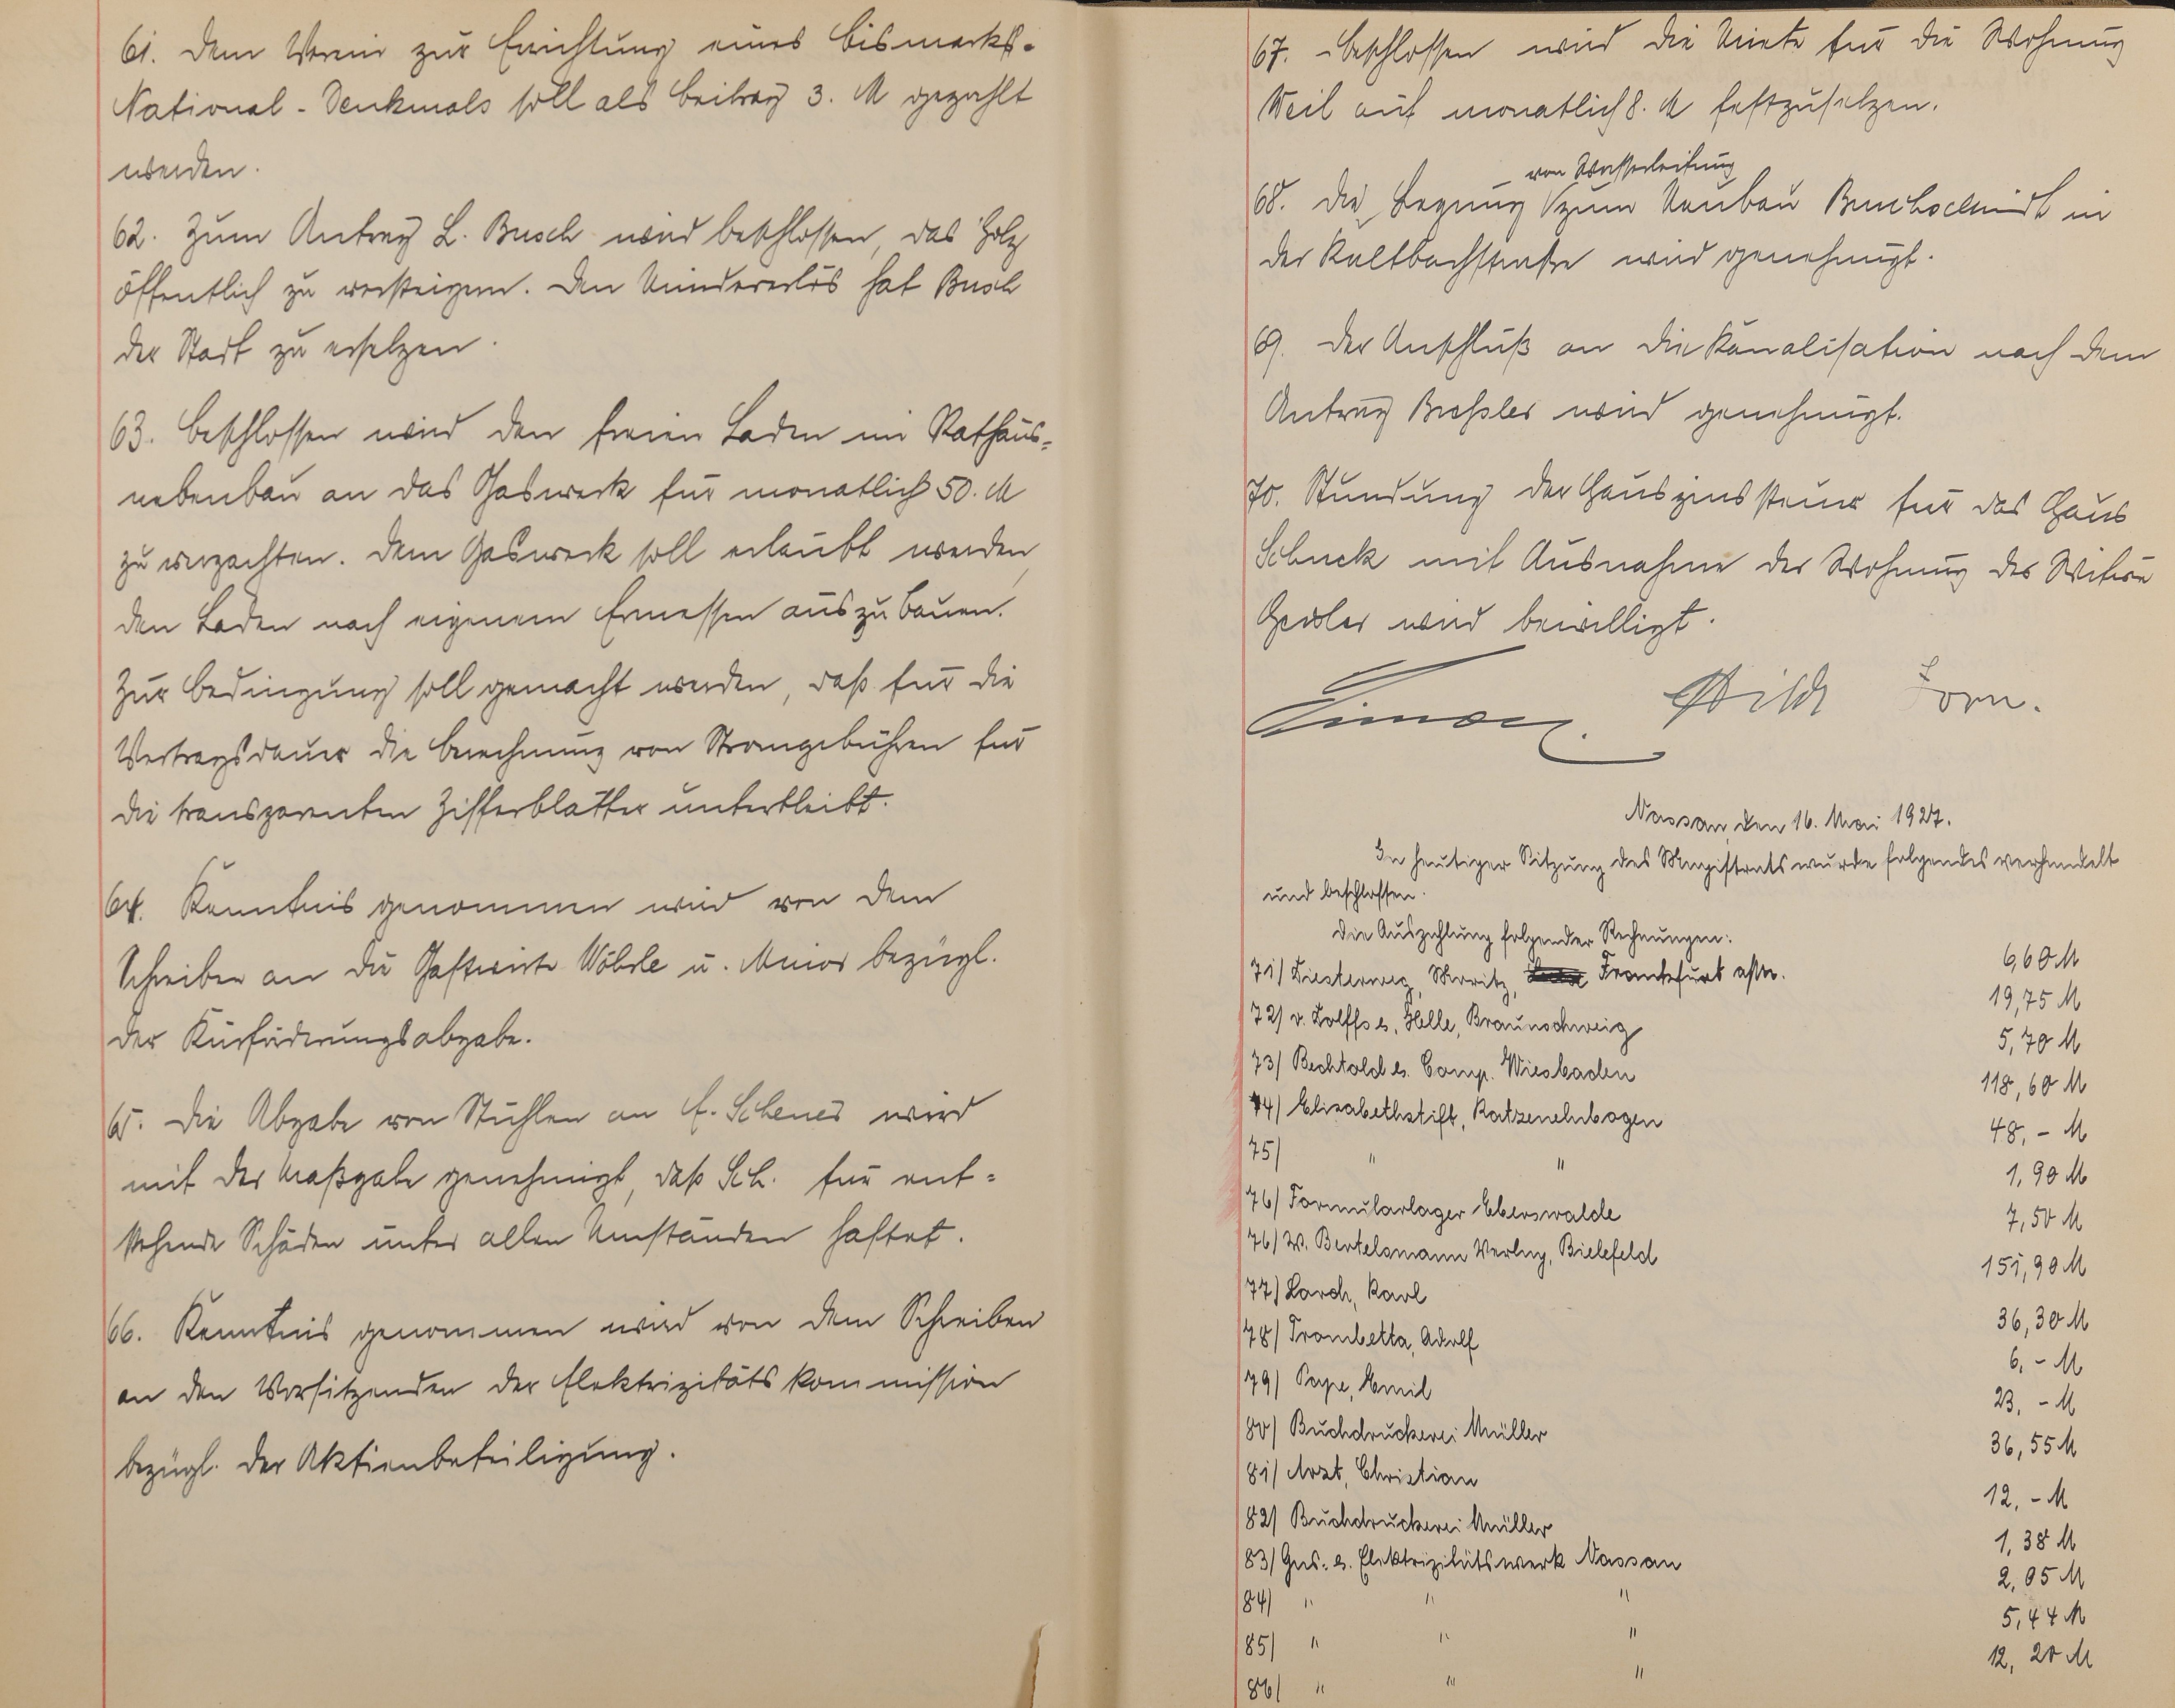 61. Dem Verein zur Errichtung eines Bismarks-
National-Denkmals soll als Beitrag 3. M gezahlt
werden.
62. Zum Antrag L. Busch wird beschlossen, das Holz
öffentlich zu versteigern. Den Mindererlös hat Busch
der Stadt zu ersetzen.
63. Beschlossen wird den freien Laden im Rathaus-
nebenbau an das Gaswerk für monatlich 50. M
zu verpachten. Dem Gaswerk soll erlaubt werden,
den Laden nach eigenem Ermessen auszubauen.
Zur Bedingung soll gemacht werden, daß für die
Vertragsdauer die Berechnung von Stromgebühren für
die transparenten Zifferblätter unterbleibt.
64. Kenntnis genommen wird von dem
Schreiben an die Gastwirte Wöhrle u. Meior bezügl.
der Kurförderungsabgabe.
65. Die Abgabe von Stühlen an E. Scheuer wird
mit der Maßgabe genehmigt, daß Sch. für ent-
stehende Schäden unter allen Umständen haftet.
66. Kenntnis genommen wird von dem Schreiben
an den Vorsitzenden der Elektrizitätskommission
bezügl. der Aktienbeteiligung.
67. Beschlossen wird die Miete für die Wohnung
Weil auf monatlich 8. M festzusetzen.
von Wasserleitung
68. Die Legung zum Neubau Buschschmidt in
der Kaltbachstraße wird genehmigt.
69. Der Anschluß an die Kanalisation nach dem
Antrag Bressler wird genehmigt.
70. Stundung der Hauszinssteuer für das Haus
Schuck mit Ausnahme der Wohnung der Witwe
wird bewilligt.
Nassau, den 16. Mai 1927.
In heutiger Sitzung des Magistrats wurde folgendes verhandelt
und beschlossen.
Die Auszahlung folgender Rechnungen:
71) Diesterweg, Moritz, Frankfurt a/M. 6,60 M
72) v. Dolffs & Helle, Braunschweig 19,75 M
73) Bechtold & Comp. Wiesbaden 5,70 M
74) Elisabethstift, Katzenelnbogen 118,60 M
75) " " 48,- M
76) Formularlager Eberswalde 1,90 M
76) W. Bertelsmann Verlag, Bielefeld 7,50 M
77) Lorch, Karl 151,90 M
78) Trombetta, Adolf 36,30 M
79) Pape, Emil 6,- M
80) Buchdruckerei Müller 23,- M
81) Arzt, Christian 36,55 M
82) Buchdruckerei Müller 12,- M
83) Gas- & Elektrizitätswerk Nassau 1,38 M
84) " " " 2,05 M
85) " " " 5,44 M
86) " " " 12,20 M